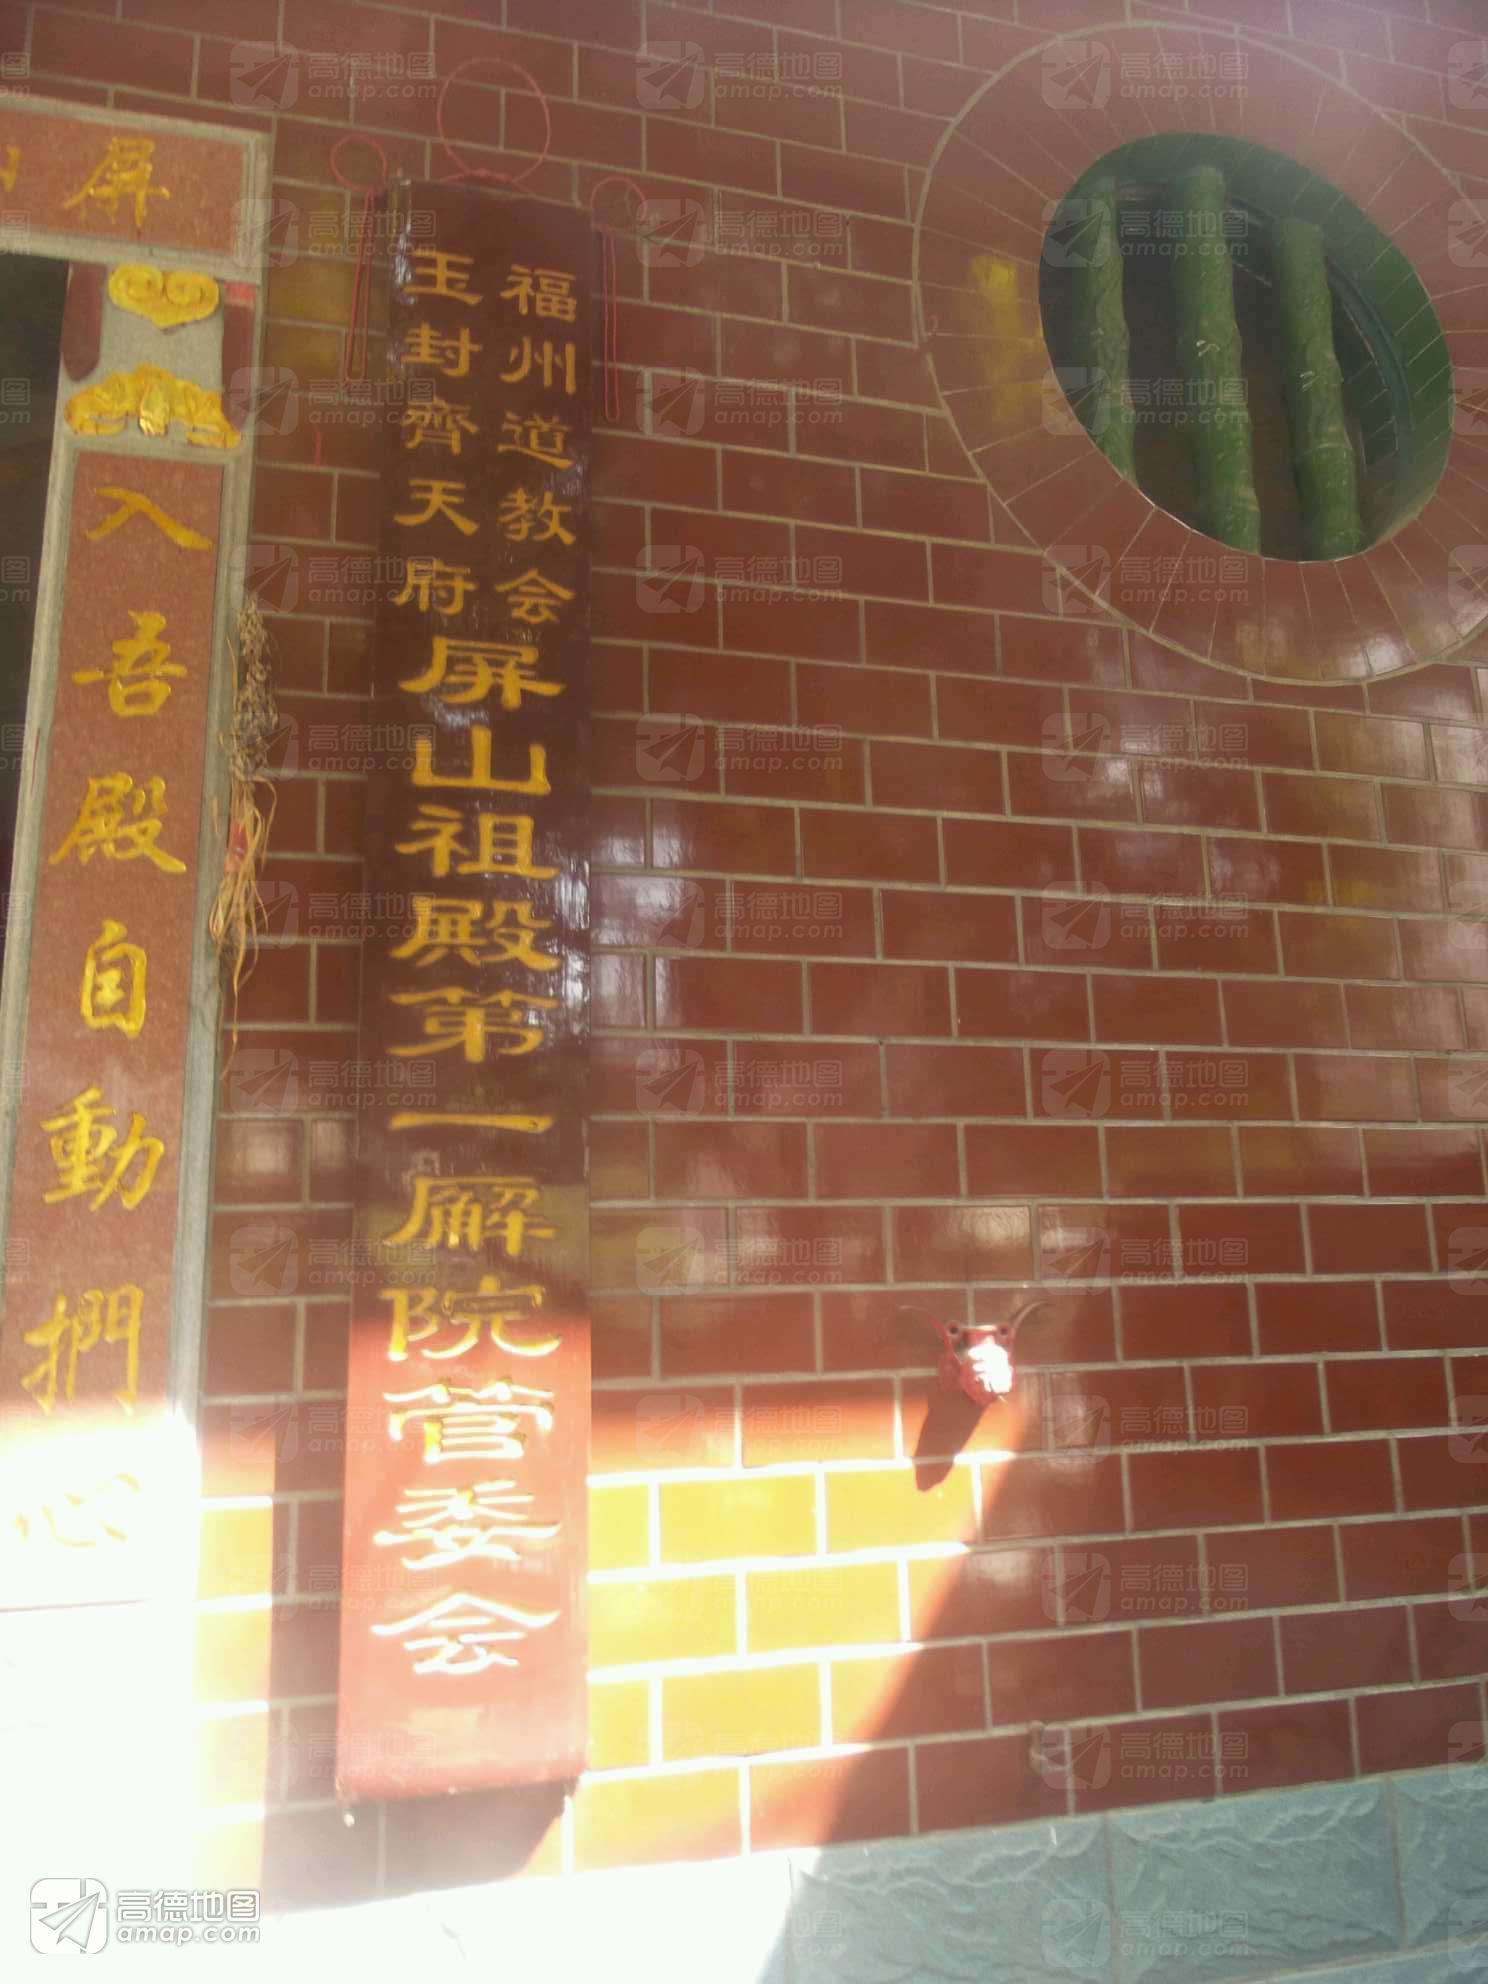 福州道教会
玉封齊天府
屏山祖殿第一廨院管委会
屏
入吾殿自動捫心
高德地图
amap.com